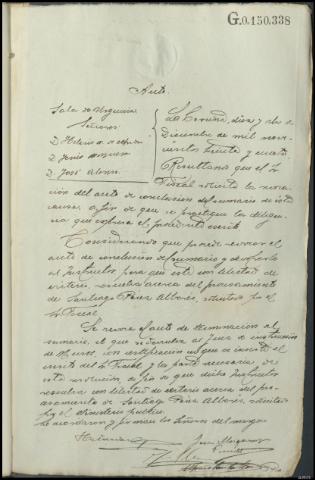 G.0.150.338
Auto.
Sala de
Señores
D.
D. Jesús
D. José Alonso
La Coruña, diez y
Diciembre de mil nove
cientos treinta y cuatro
Resultando que el Sr.
Fiscal solicita la revoca
ción del auto de conclusion del sumario de esta
causa, a fin de que se practiquen las diligen
cias que expresa el precedente escrito.
Considerando que procede revocar el
auto de conclusion del sumario y devolverlo
al Instructor para que este con libertad de
criterio, resuelva acerca del procesamiento
de Santiago Peña Albores, solicitado por el
Sr. Fiscal.
Se revoca el auto de terminacion del
sumario, el que se devuelva al Juez de instrucción
de Muros, con certificación en que se inserte el
escrito del Sr. Fiscal, y la parte necesaria de
esta resolucion, a fin de que dicho Instructor
resuelva con libertad de criterio acerca del pro
cesamiento de Santiago Peña Albores, solicitado
por el Ministerio publico.
Lo acordaron y firman los Señores del margen